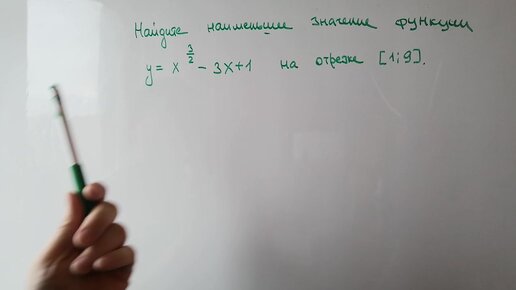 Найдите наименьшее значение функции
y = x^{3/2} - 3x+1 на отрезке [1;9].